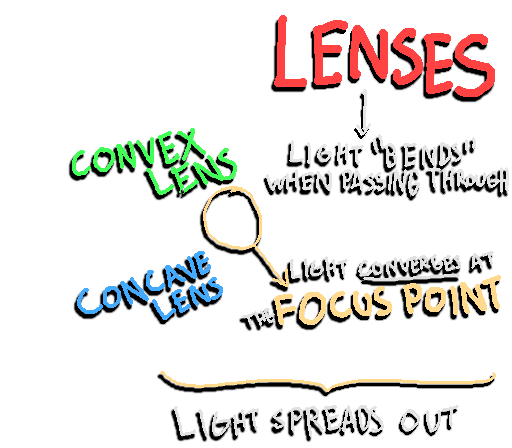 LENSES
LIGHT "BENDS"
WHEN PASSING THROUGH
CONVEX
LENS
LIGHT CONVERGES AT
THE FOCUS POINT
CONCAVE
LENS
LIGHT SPREADS OUT